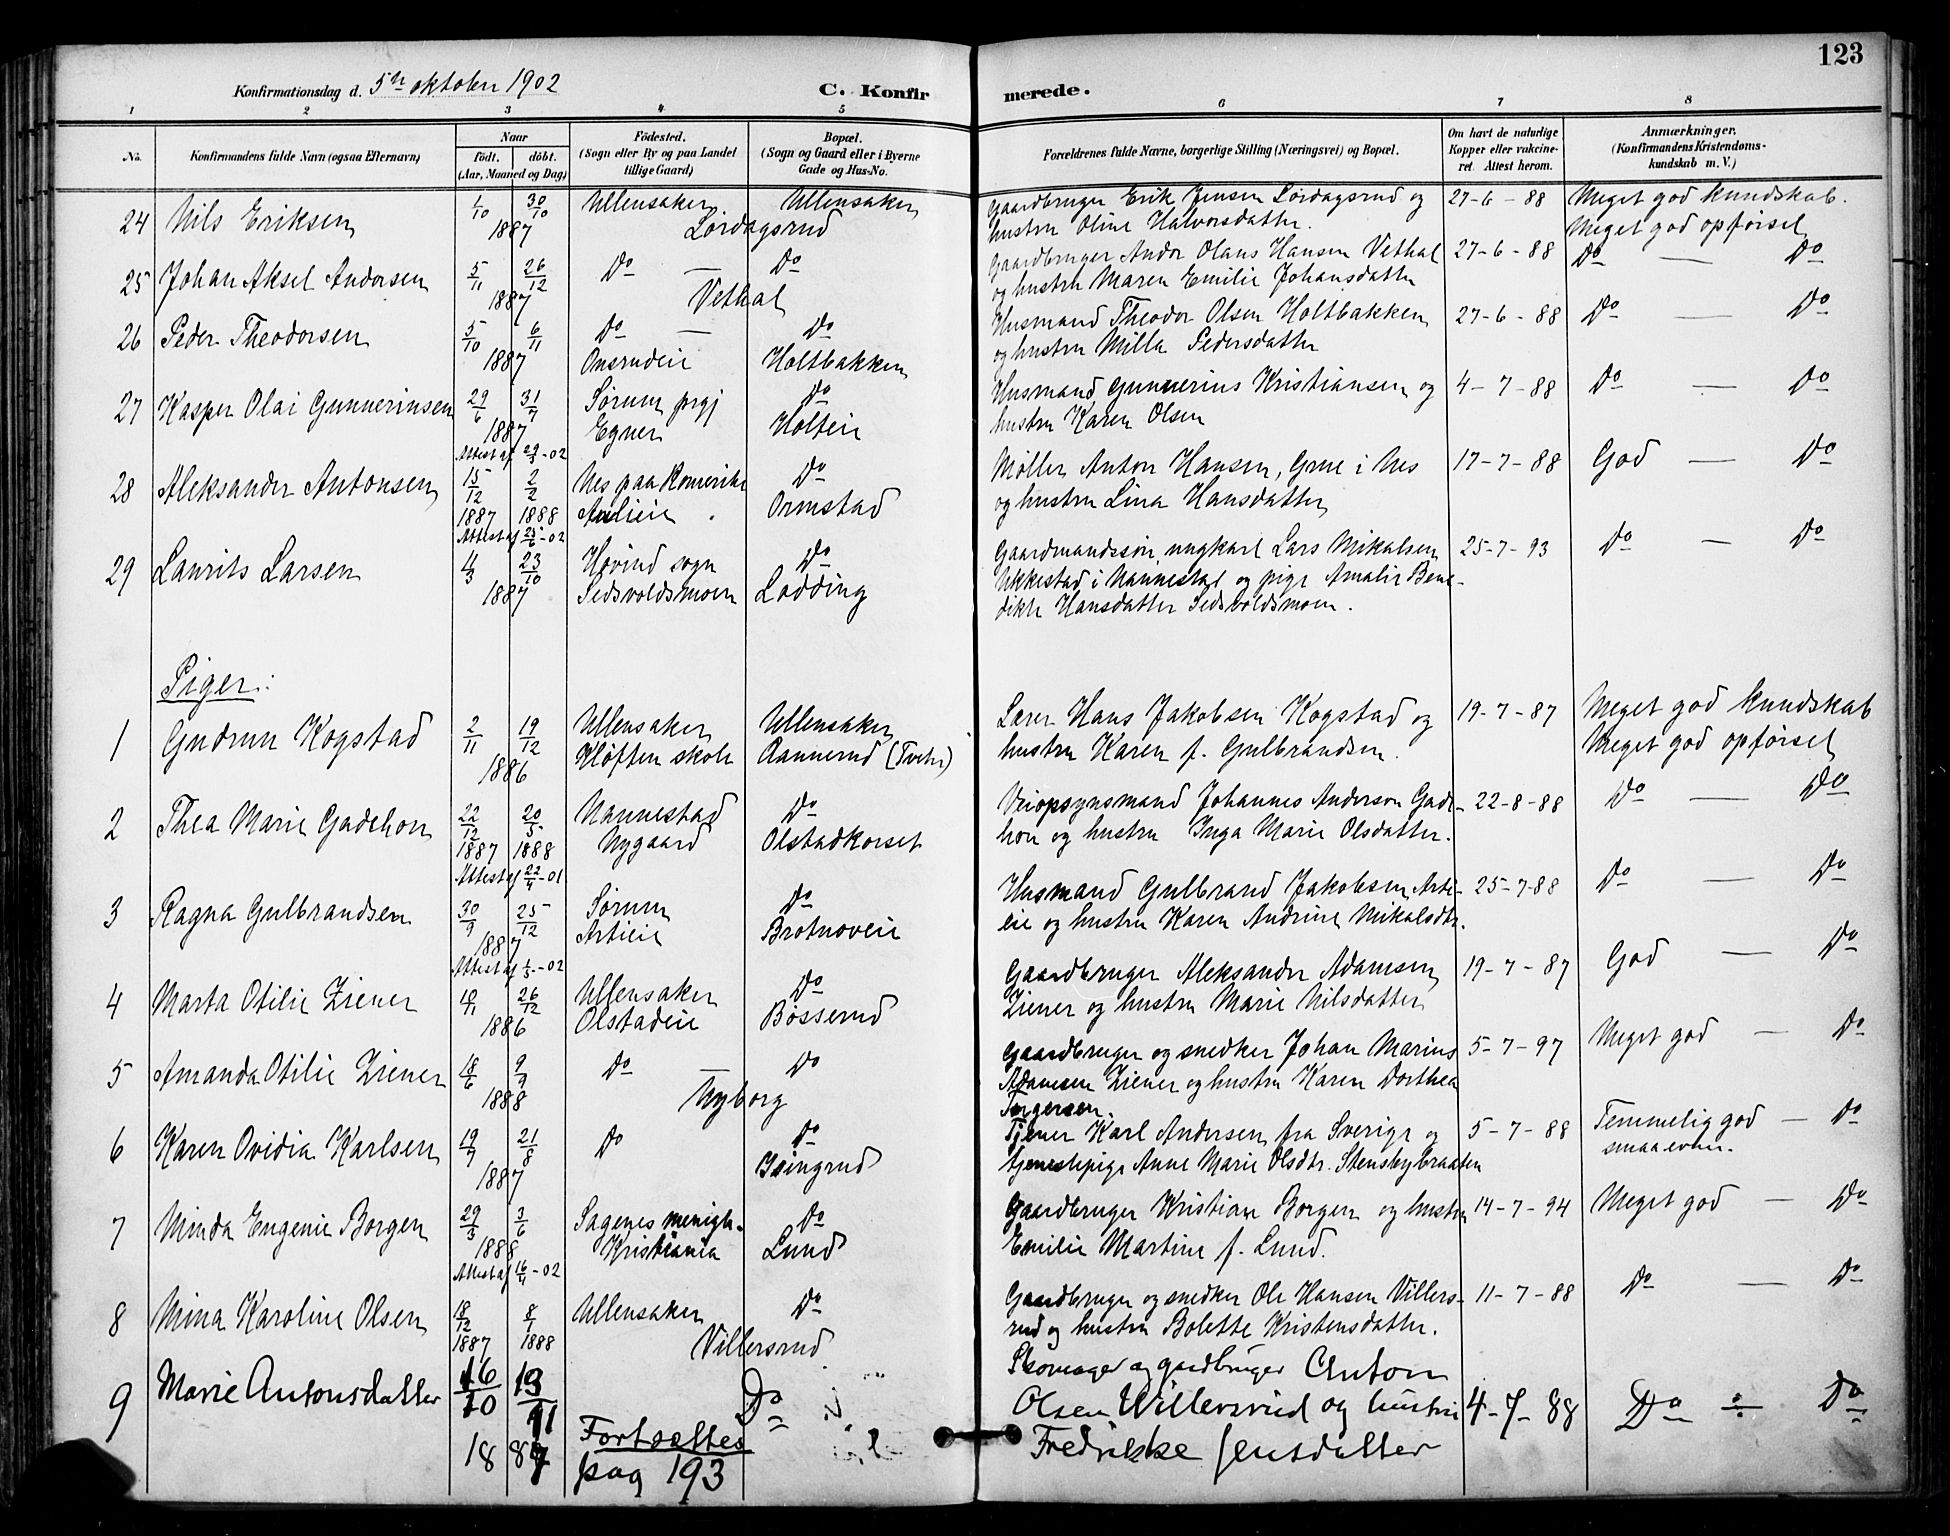 123
Konfirmationsdag d. 5te oktober 1902
C. Konfirmerede.
1 2 3 4 5 6 7 8
No.
Konfirmandens fulde Navn (ogsaa Efternavn)
Naar
født. døbt.
(Aar, Maaned og Dag)
Födested.
(Sogn eller By og paa Landet
tillige Gaard)
Bopæl.
(Sogn og Gaard eller i Byerne
Gade og Hus-No.
Forældrenes fulde Navne, borgerlige Stilling (Næringsvei) og Bopæl.
Om havt de naturlige
Kopper eller vakcine-
ret. Attest herom.
Anmærkninger.
(Konfirmandens Kristendoms-
kundskab m. V.)
24 Nils Eriksen 1/10 30/10 1887 Ullensaker Ullensaker Lørdagsrud
Gaardbruger Erik Jensen Lørdagsrud og
hustru Oline Halvorsdatter.
27-6-88 Meget god kundskab.
Meget god opførsel
25 Johan Aksel Andersen 5/11 26/12 1887 Do — Do Vethal
Gaardbruger Andor Olaus Hansen Vethal
og hustru Maren Emilie Johansdatter
27-6-88 Do — Do
26 Peder Theodorsen 5/10 6/11 1887 Do — Do
Onsrudeie Holtbakken
Husmand Theodor Olsen Holtbakken
og hustru Milla Pedersdatter
27-6-88 Do — Do
27 Kasper Olai Gunneriusen 29/6 31/7 1887 Sørum prgj Do
Egner Holteie
Attest af 29/3-02
Husmand Gunnerius Kristiansen og
hustru Karen Olsen
4-7-88 Do — Do
28 Aleksander Antonsen 15/12 2/2 1887 1888 Nes paa Romerike Do
Aulieie Ormstad
Attest af 25/6-02
Møller Anton Hansen, Grue i Nes
og hustru Lina Hansdatter
17-7-88 God — Do
29 Laurits Larsen 4/3 23/10 1887 Høvind sogn Do
Sedsvoldsmoen Lodding
Gaardmandssøn ungkarl Lars Mikalsen
Ukkestad i Nannestad og pige Amalie Bene-
dikte Hansdatter Sedsvoldsmoen.
25-7-93 Do — Do
Piger:
1 Gudrun Kogstad 2/11 19/12 1886 Ullensaker Ullensaker
Kløften skole Aannerud (Tveter)
Lærer Hans Jakobsen Kogstad og
hustru Karen f. Gulbrandsen.
19-7-87 Meget god kundskab
Meget god opførsel
2 Thea Marie Gadehon 22/12 20/5 1887 1888 Nannestad Do
Nygaard Olstadkorset
Attest af 22/4-01
Veiopsynsmand Johannes Anderson Gade-
hon og hustru Inga Marie Olsdatter.
22-8-88 Do — Do
3 Ragna Gulbrandsen 30/9 25/12 1887 Sørum Do
Artieie Brotnoveie
Attest af 1/5-02
Husmand Gulbrand Jakobsen Arti-
eie og hustru Karen Andrine Mikalsdtr.
25-7-88 Do — Do
4 Marta Otilie Ziener 10/11 26/12 1886 Ullensaker Do
Olstadeie Bøsserud
Gaardbruger Aleksander Adamsen
Ziener og hustru Marie Nilsdatter
19-7-87 God — Do
5 Amanda Otilie Ziener 18/6 9/9 1888 Do — Do
Nyborg
Gaardbruger og snedker Johan Marius
Adamsen Ziener og hustru Karen Dorthea
Torgersen.
5-7-97 Meget god — Do
6 Karen Ovidia Karlsen 19/7 21/8 1887 Do Do
Isingrud
Tjener Karl Andersen fra Sverige og
tjenestepige Anne Marie Olsdtr. Stensbybraaten
5-7-88 Temmelig god — Do
smaa evner.
7 Minda Eugenie Borgen 29/3 3/6 1888 Sagenes menigh. Do
Kristiania Lund
Attest af 16/4-02
Gaardbruger Kristian Borgen og hustru
Emilie Martine f. Lund.
14-7-94 Meget god — Do
8 Mina Karoline Olsen 18/12 8/1 1887 1888 Ullensaker Do
Villersrud
Gaardbruger og snedker Ole Hansen Villers-
rud og hustru Bolette Kristensdatter.
11-7-88 Do — Do
9 Marie Antonsdatter 16/10 13/11 1887 Do
Skomager og gardbruger Anton
Olsen Willersrud og hustru
Fredrikke Jensdatter
4-7-88 Do ÷ Do
Fortsættes
pag 193